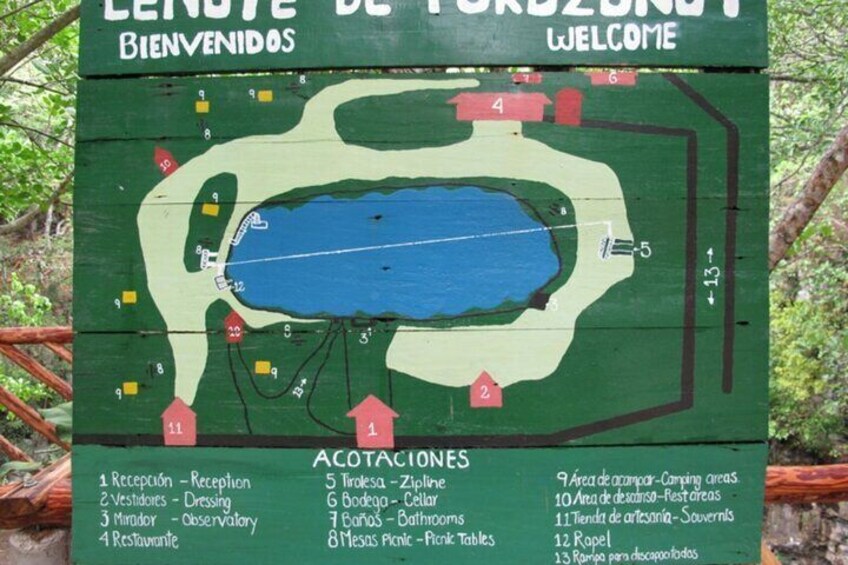 CENOTE DE YOKDZONOT
BIENVENIDOS
WELCOME
8
7
6
9
9
4
8
10
9
8
8
5
12
13
9
10
8
3
8
13
9
2
11
1
ACOTACIONES
1 Recepción - Reception
2 Vestidores - Dressing
3 Mirador - Observatory
4 Restaurante
5 Tirolesa - Zipline
6 Bodega - Cellar
7 Baños - Bathrooms
8 Mesas Picnic - Picnic Tables
9 Área de acampar - Camping areas
10 Área de descanso - Rest areas
11 Tienda de artesanía - Souvernis
12 Rapel
13 Rampa para discapacitados